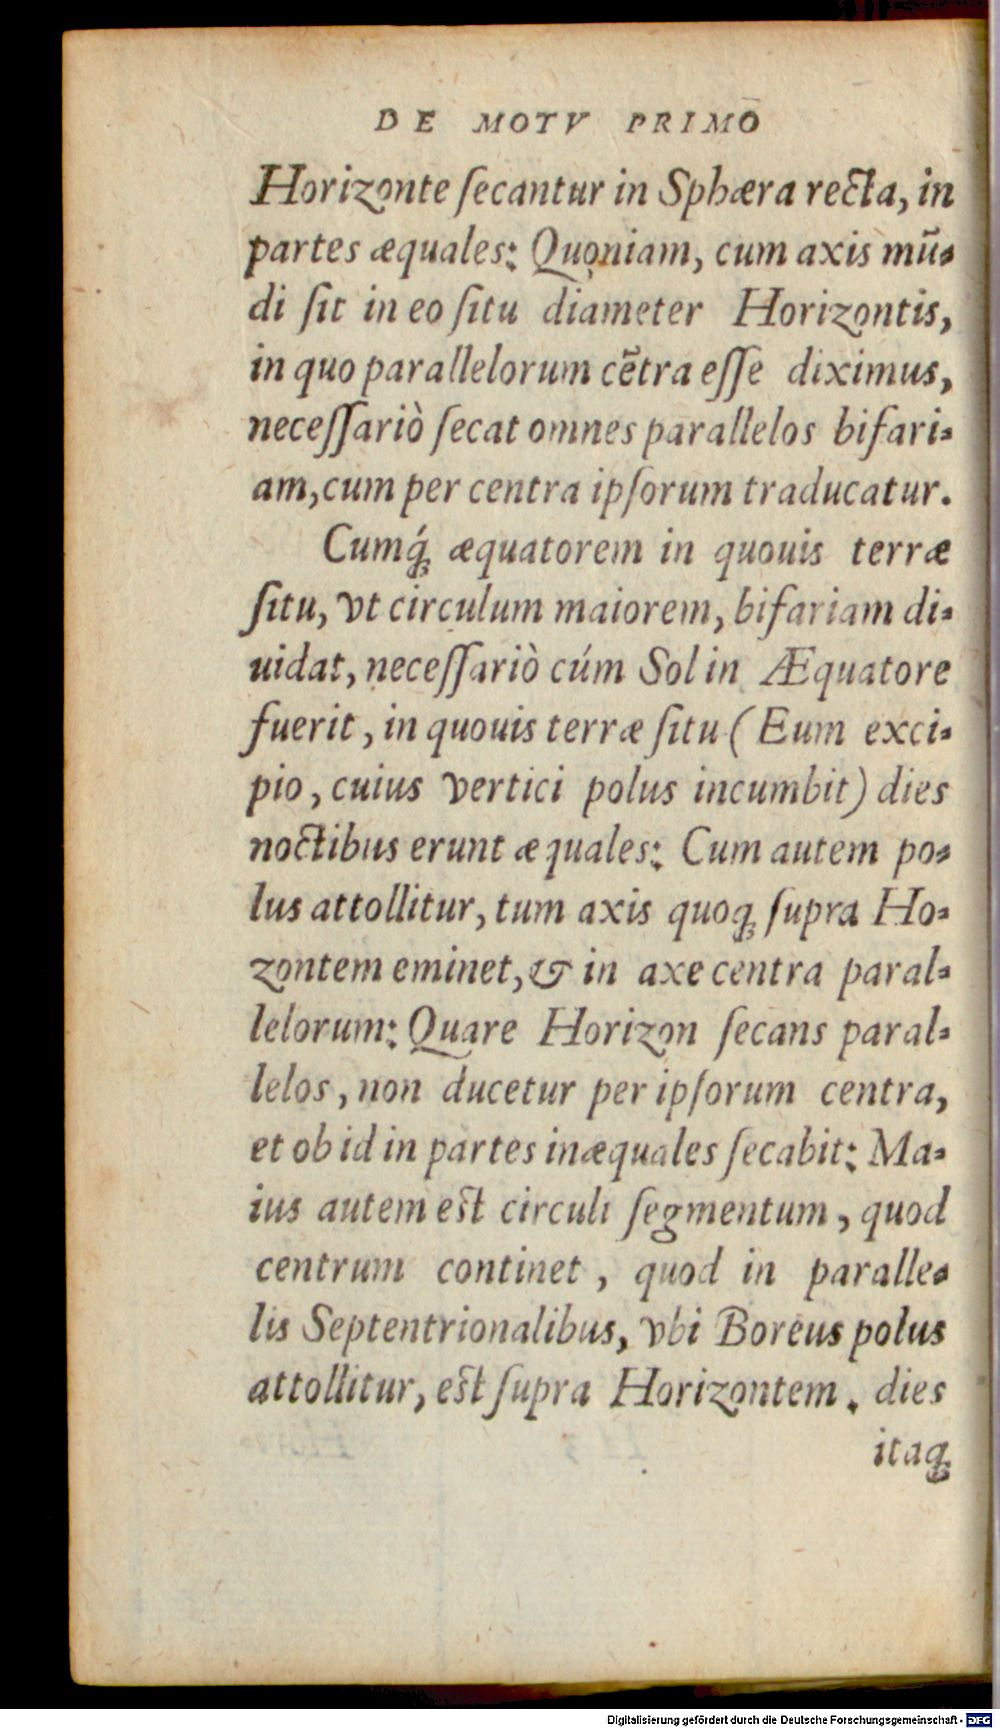 DE MOTV PRIMO
Horizonte ſecantur in Sphæra recta, in
partes æquales: Quoniam, cum axis mũ-
di ſit in eo ſitu diameter Horizontis,
in quo parallelorum cẽtra eſſe diximus,
neceſſariò ſecat omnes parallelos bifari-
am, cum per centra ipſorum traducatur.
Cumq́; æquatorem in quouis terræ
ſitu, vt circulum maiorem, bifariam di-
uidat, neceſſariò cúm Sol in Æquatore
fuerit, in quouis terræ ſitu (Eum exci-
pio, cuius vertici polus incumbit) dies
noctibus erunt æquales: Cum autem po-
lus attollitur, tum axis quoq; ſupra Ho-
zontem eminet, & in axe centra paral-
lelorum: Quare Horizon ſecans paral-
lelos, non ducetur per ipſorum centra,
et ob id in partes inæquales ſecabit: Ma-
ius autem est circuli ſegmentum, quod
centrum continet, quod in paralle-
lis Septentrionalibus, vbi Boreus polus
attollitur, est ſupra Horizontem. dies
itaq;
Digitalisierung gefördert durch die Deutsche Forschungsgemeinschaft - DFG